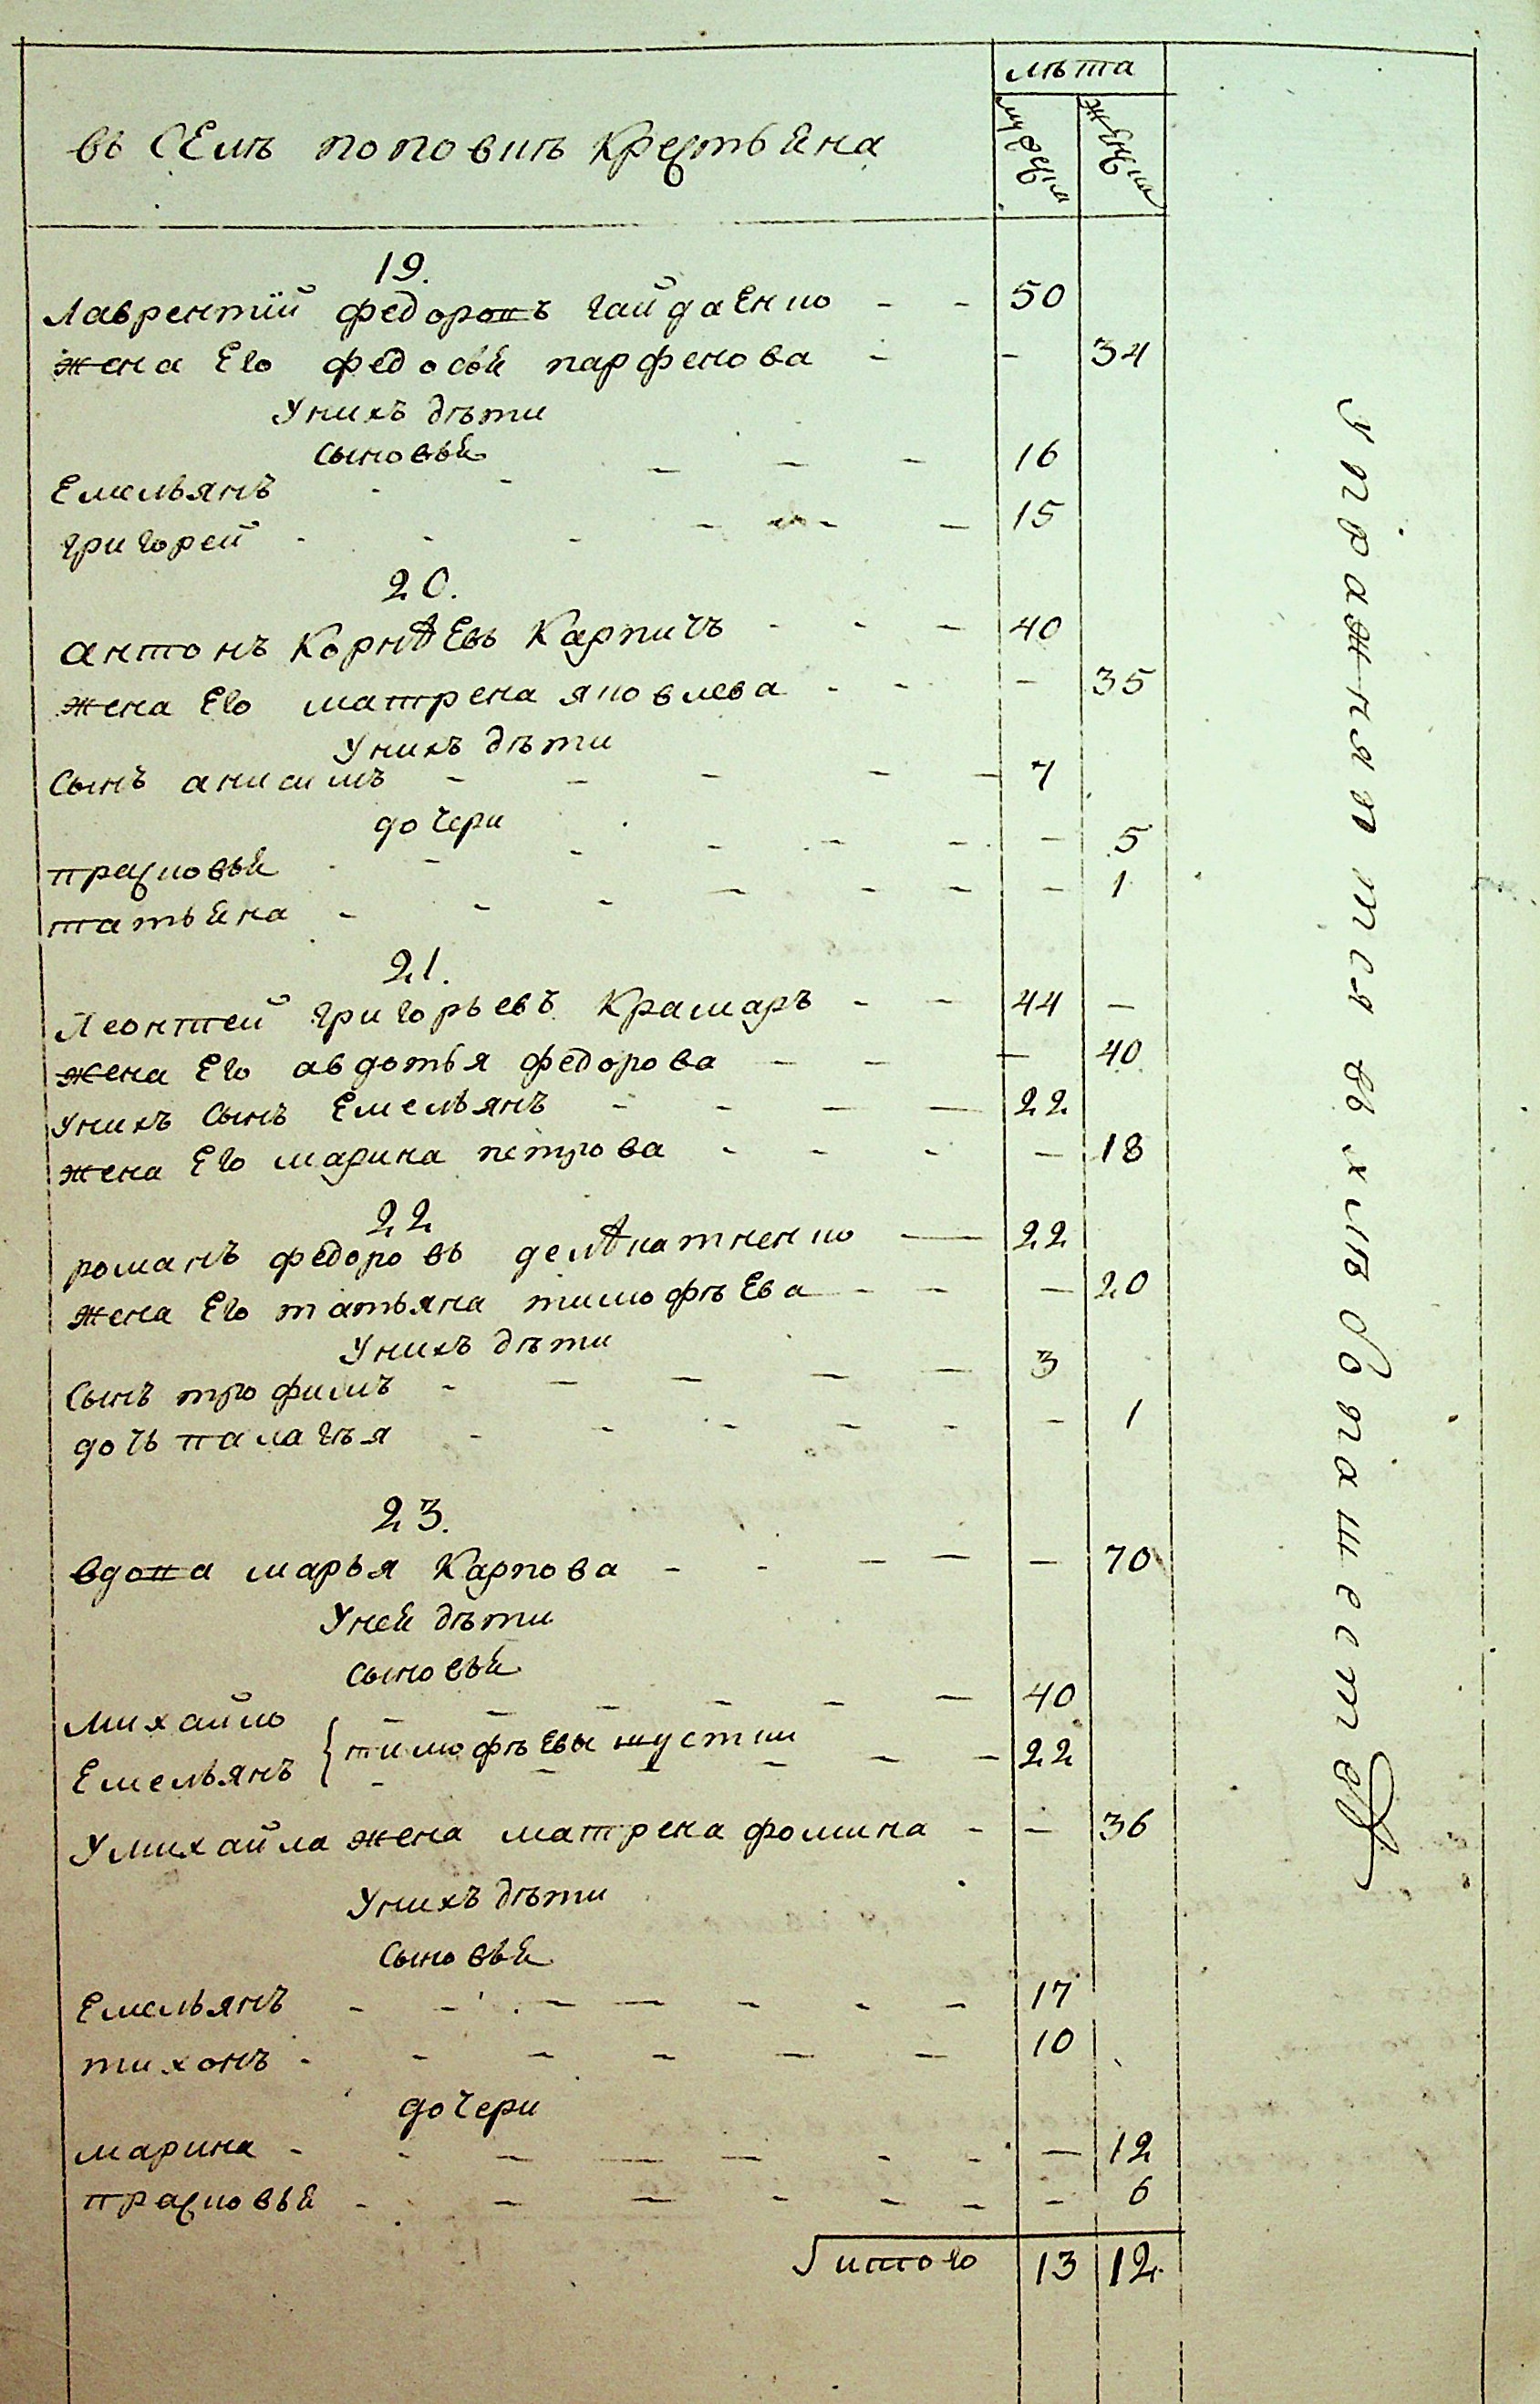 лѣта
въ Селѣ поповкѣ крестьяна
мужеска
женска
19.
Лаврентій федоровъ гайдаенко - - 50
жена Его федосья парфенова - - 34
Унихъ дѣти
сыновья
Емельянъ - - - - - 16
григорей - - - - - - 15
20.
антонъ Корнѣевъ Карпичъ - - - 40
жена Его матрена яковлева - - - 35
Унихъ дѣти
Сынъ анисимъ - - - - - 7
дочери
прасковья - - - - - - - 5
татьяна - - - - - - - 1
21.
Леонтей григорьевъ Крамаръ - - 44 -
жена Его авдотья федорова - - - 40
унихъ Сынъ Емельянъ - - - - 22
жена Его марина петрова - - - - 18
22
романъ федоровъ делѣкатненко - 22
жена Его татьяна тимофѣева - - - 20
Унихъ дѣти
Сынъ трофимъ - - - - - 3
дочь палагѣя - - - - - - 1
23.
вдова марья Карпова - - - - - 70
Уней дѣти
сыновья
михайло - - - - - - 40
Емельянъ { тимофѣевы шустики - - - - - 22
Умихайла жена матрена фомина - - 36
Унихъ дѣти
Сыновья
Емельянъ - - - - - - - 17
тихонъ - - - - - - 10
дочери
марина - - - - - - - - 12
прасковья - - - - - - - 6
итого 13 12
упражняется въ хлѣбопашестве